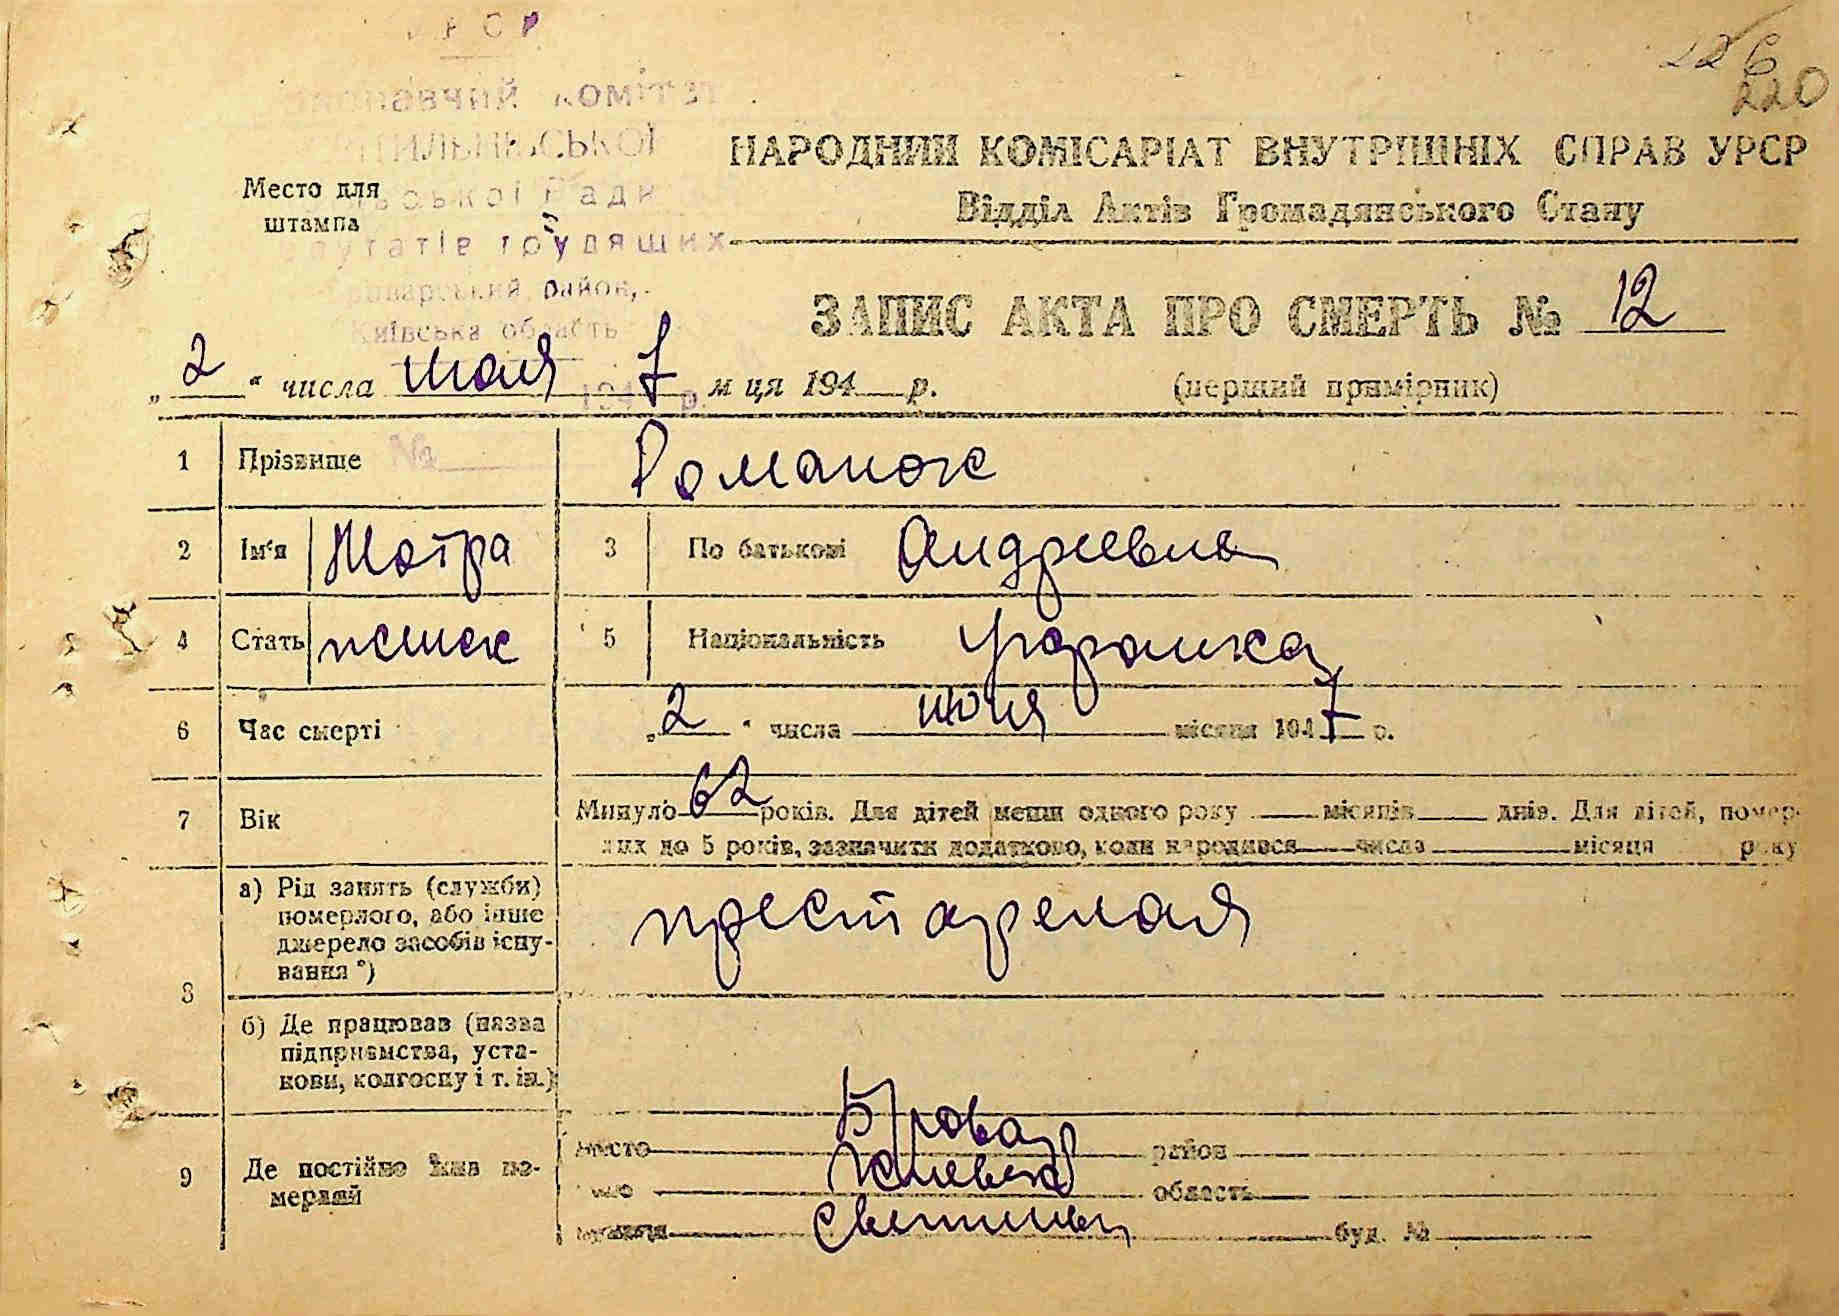 УРСР
226
220
Виконавчий комітет
Місто для
штампа
Ради
депутатів трудящих
Броварський район,
Київська область
194 р.
№
НАРОДНИЙ КОМІСАРІАТ ВНУТРІШНІХ СПРАВ УРСР
Відділ Актів Громадянського Стану
ЗАПИС АКТА ПРО СМЕРТЬ № 12
„2“ числа июля 7 м ця 194 р.
(перший примірник)
1 Прізвище Романюк
2 Ім'я Мотра 3 По батькові Андреевна
4 Стать 5 Національність украинка
6 Час смерті „2“ числа июля місяця 1947 р.
7 Вік Минуло 62 років. Для дітей менш одного року місяців днів. Для дітей, помер-
лих до 5 років, зазначити додатково, коли народився числа місяця року
8 а) Рід занять (служби)
померлого, або інше
джерело засобів існу-
вання *)
престарелая
б) Де працював (назва
підприємства, уста-
нови, колгоспу і т. ін.)
9 Де постійно жив по-
мерлий
місто Бровар район
село Киевск область
вулиця буд. №